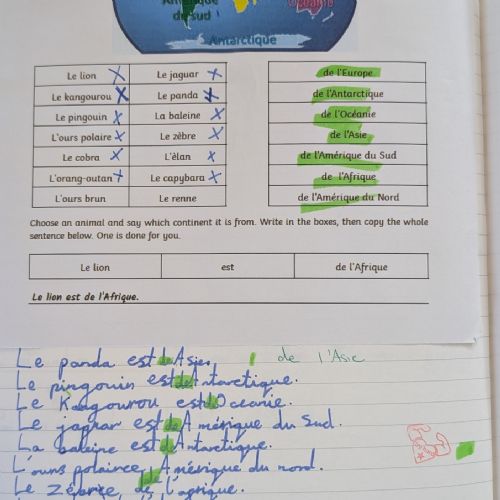 Amérique
du sud
Océanie
Antarctique
Le lion Le jaguar de l'Europe
Le kangourou Le panda de l'Antarctique
Le pingouin La baleine de l'Océanie
L'ours polaire Le zèbre de l'Asie
Le cobra L'élan de l'Amérique du Sud
L'orang-outan Le capybara de l'Afrique
L'ours brun Le renne de l'Amérique du Nord
Choose an animal and say which continent it is from. Write in the boxes, then copy the whole
sentence below. One is done for you.
Le lion est de l'Afrique
Le lion est de l'Afrique.
Le panda est de Asie, de l'Asie
Le pingouin est de Antarctique.
Le Kangourou est de Oceanie.
Le japhar est de Amérique du Sud.
La baleine est de Antarctique.
L'ours polairce, Amérique du nord.
Le zébrce, de l'afrique.